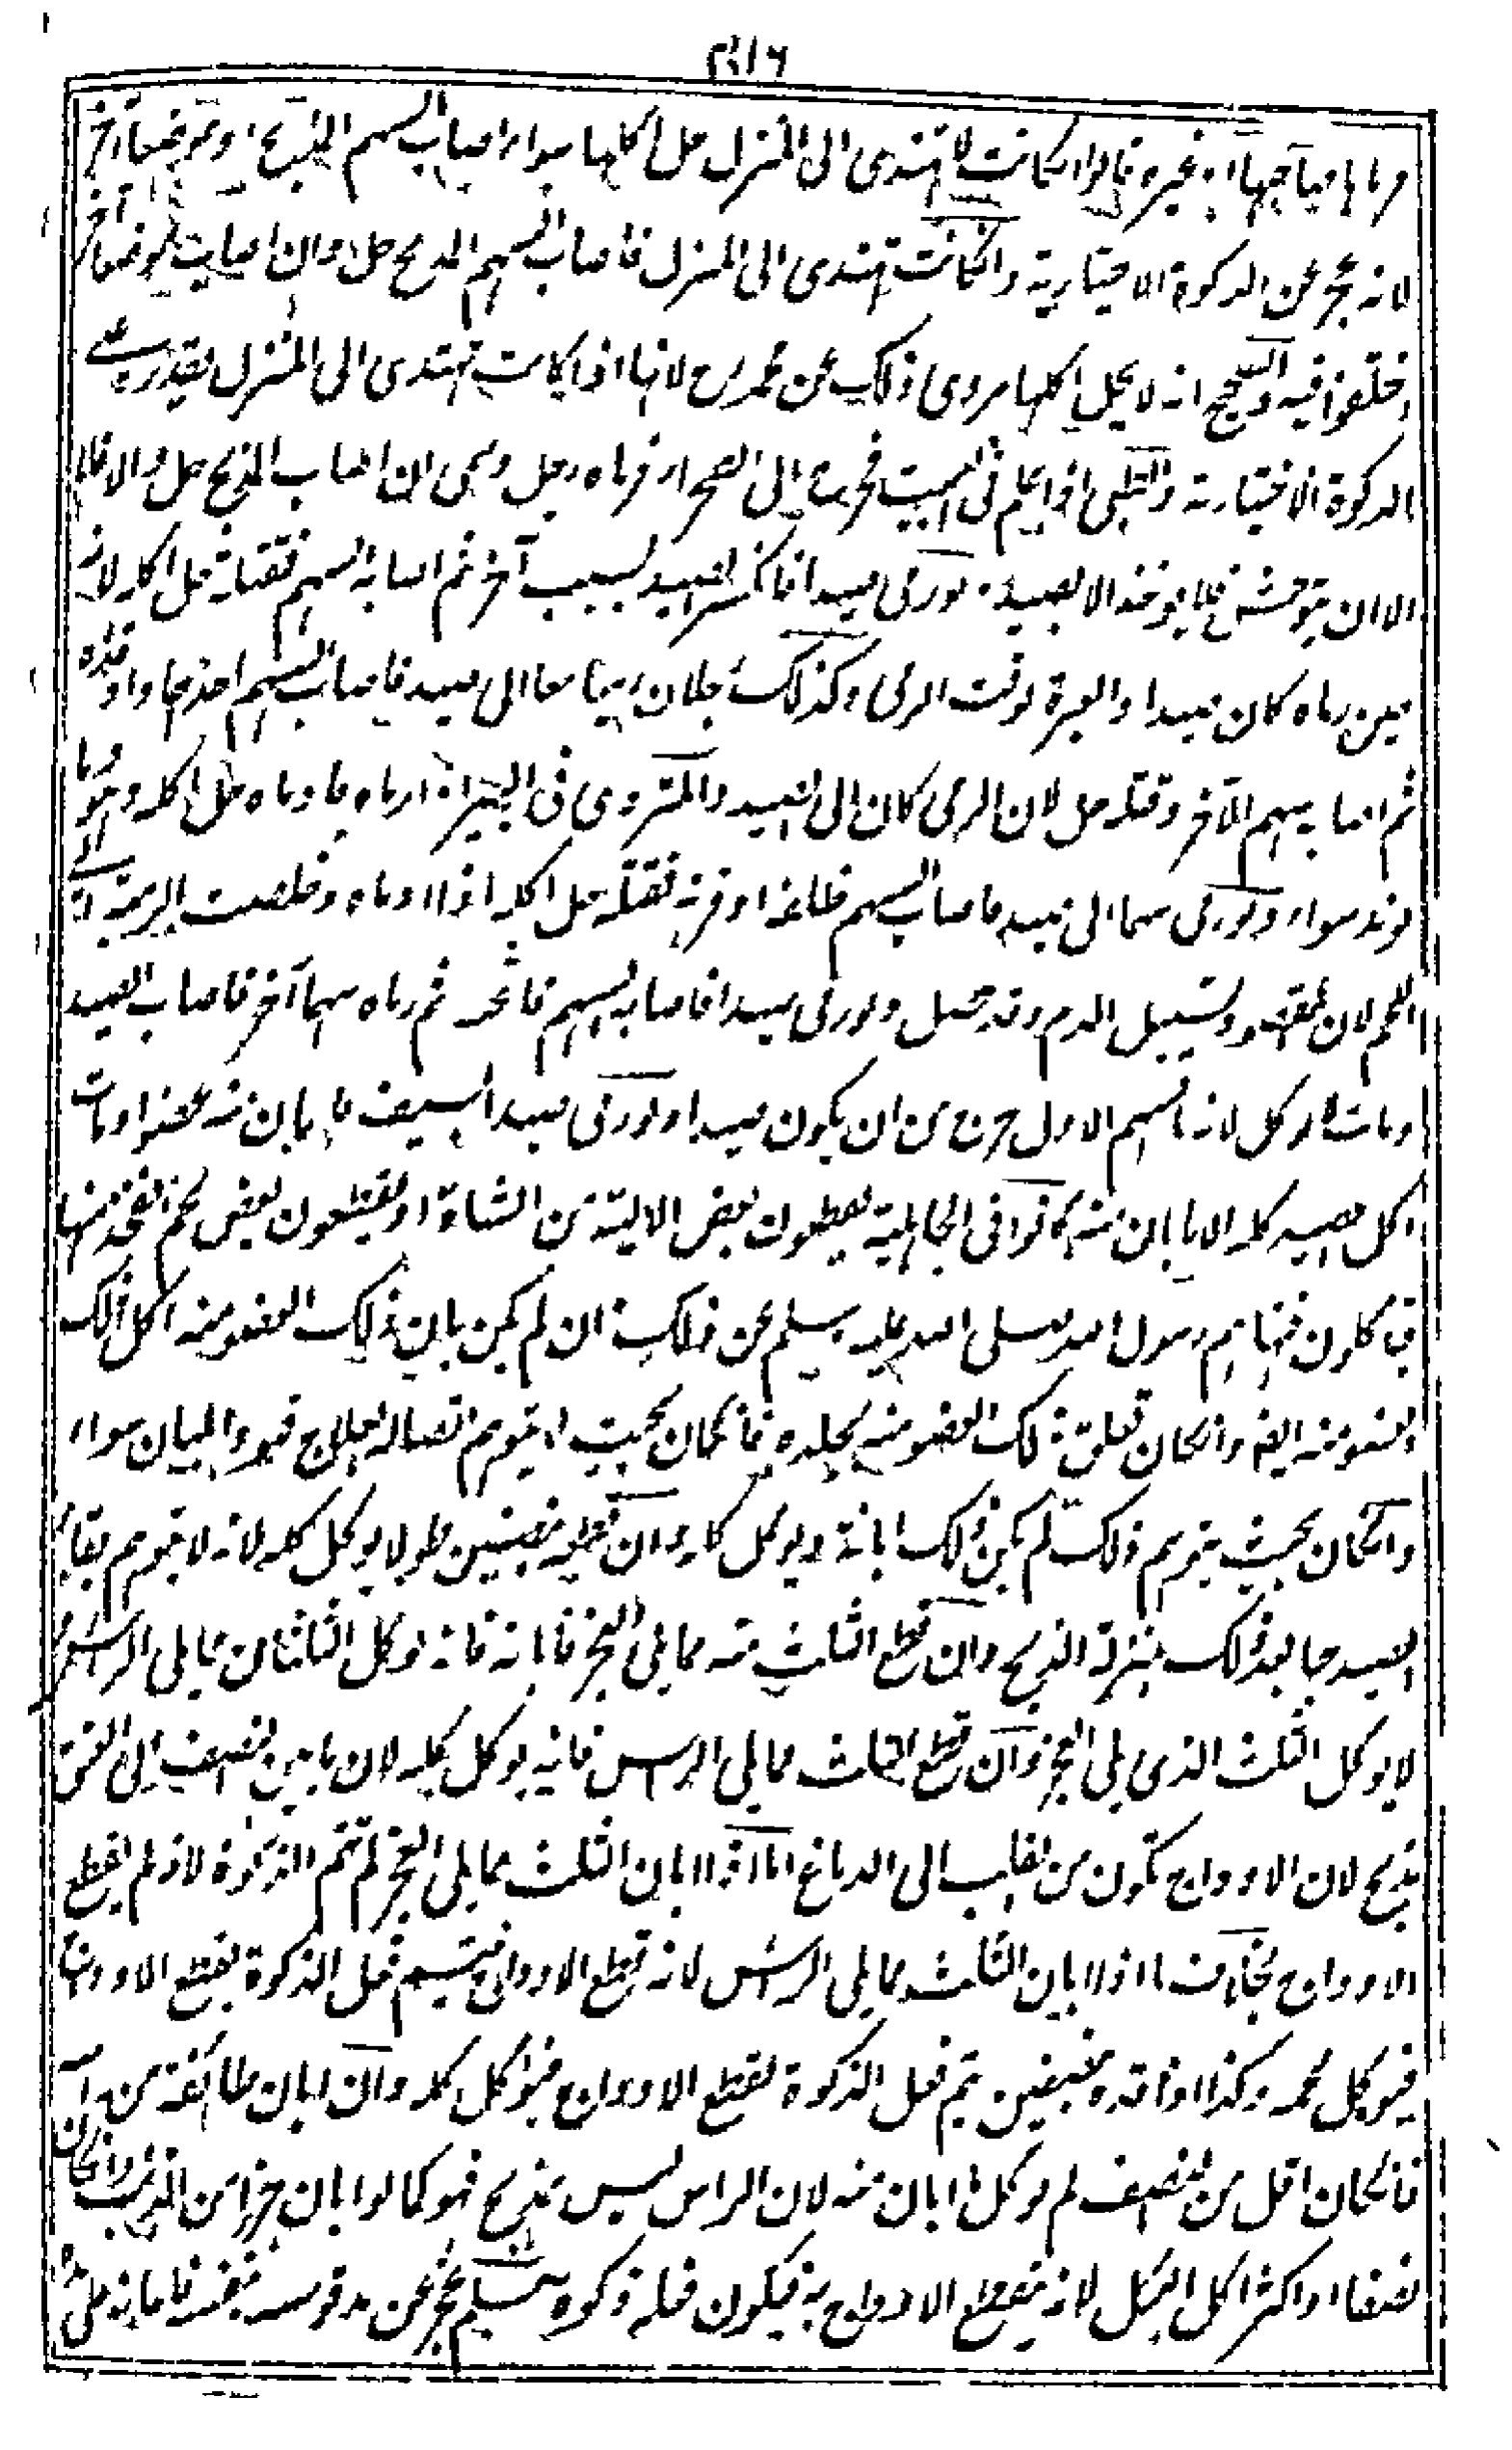 فرماها صاحبها او غيره قالوا ان كانت لا تهتدى الى المنزل حل اكلها سواء اصاب السهم المذبح او موضعا آخر
لانه عجز عن الذكوة الاختيارية وان كانت تهتدى الى المنزل فاصاب السهم المذبح حل وان اصاب موضعا آخر
اختلفوا فيه والصحيح انه لا يحل اكلها مروى ذلك عن محمد رح لانها اذا كانت تهتدى الى المنزل يقدر على
الذكوة الاختيارية والظبى اذا علم فى البيت فخرج الى الصحراء فرماه رجل وسمى ان اصاب المذبح حل والا فلا
الا ان يتوحش فلا يؤخذ الا بصيد ولو رمى صيدا فانكسر الصيد بسبب آخر ثم اصابه السهم فقتله حل اكله لانه
حين رماه كان صيدا والعبرة لوقت الرمى وكذلك رجلان رميا معا الى صيد فاصاب السهم احدهما واوقذه
ثم اصابه سهم الآخر وقتله حل لان الرمى كان الى الصيد والمتروى فى البير اذا رماه فادماه حل اكله وهو وما
لوند سواء ولو رمى سهما الى صيد فاصاب السهم ظلفه او قرنه فقتله حل اكله اذا ادماه وخلصت الرمية الى
اللحم لان المقصود تسييل الدم وقد حصل ولو رمى صيدا فاصابه السهم فاثخنه ثم رماه سهما آخر فاصاب الصيد
ومات لا يوكل لانه بالسهم الاول خرج من ان يكون صيدا ولو رمى صيدا بسيف فابان منه عضوا ومات
اكل الصيد كله الا ما بان منه كانوا فى الجاهلية يقطعون بعض الالية من الشاة او يقطعون بعض لحم الفخذ منها
فيأكلون فنهاهم رسول الله صلى الله عليه وسلم عن ذلك ان لم يكن بان ذلك العضو منه اكل ذلك
العضو منه ايضا وان كان تعلق ذلك العضو منه بجلده فان كان بحيث لا يتوهم اتصاله بعلاج فهو والمبان سواء
وان كان بحيث يتوهم ذلك لم يكن ذلك ابانة ويوكل كله وان قطعه نصفين طولا يوكل كله لانه لا يتوهم بقاء
الصيد حيا بعد ذلك بمنزلة الذبح وان قطع الثلث منه مما يلى العجز فابانه فانه يوكل الثلثان مما يلى الراس و
لا يوكل الثلث الذى يلى العجز وان قطع الثلث مما يلى الراس فانه يوكل كله لان ما بين النصف الى العنق
مذبح لان الاوداج تكون من القلب الى الدماغ اما اذا ابان الثلث مما يلى العجز لم تتم الذكوة لانه لم يقطع
الاوداج بخلاف ما اذا ابان الثلث مما يلى الراس لانه قطع الاوداج فيتم فعل الذكوة بقطع الاوداج
فيوكل كله وكذا اذا قده نصفين يتم فعل الذكوة بقطع الاوداج فيوكل كله وان ابان طائفة من راسه
فان كان اقل من النصف لم يوكل ما ابان منه لان الراس ليس بمذبح فهو كما لو ابان جزءا من الذنب وان كان
نصفا او اكثر اكل الكل لانه يقطع الاوداج به فيكون فعله ذكوة مسلم عجز عن مد قوسه بنفسه فاعانه على